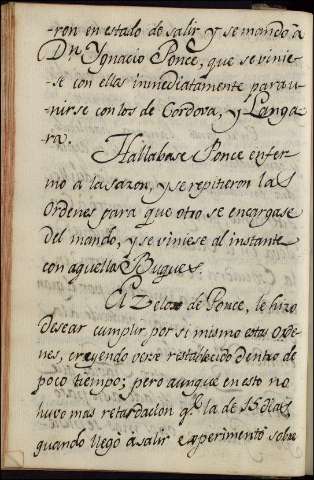 -ron en estado de salir y se mandó á
Dn. Ygnacio Ponce, que se vinie-
-se con ellas inmediatamente para u-
-nirse con los de Cordova, y Langa-
ra.
Hallabase Ponce enfer-
mo a la sazon, y se repitieron las
Ordenes para que otro se encargase
del mando, y se viniese al instante
con aquellos Buques.
El Zelo de Ponce, le hizo
desear cumplir por si mismo estas Orde-
nes, creyendo verse restablecido dentro de
poco tiempo; pero aunque en esto no
huvo mas retardacion qe. la de 15 dias
quando llegó á salir experimentó sobre